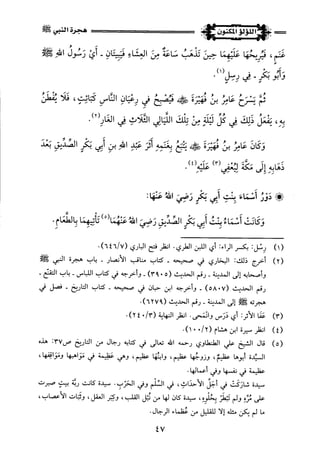 اللؤلؤ المكنون
هجرة النبي ﷺ
غَنَمٍ، فَيُرِيحُهَا عَلَيْهِمَا حِينَ تَذْهَبُ سَاعَةٌ مِنَ العِشَاءِ فَيَبِيتَانِ - أَيْ رَسُولُ اللهِ ﷺ
وَأَبُو بَكْرٍ - فِي رِسْلٍ(١).
ثُمَّ يَسْرَحُ عَامِرُ بنُ فُهَيْرَةَ ﷺ فَيُصْبِحُ فِي رُعْيَانِ النَّاسِ كَبَائِتٍ، فَلَا يُفْطَنُ
بِهِ، يَفْعَلُ ذَلِكَ فِي كُلِّ لَيْلَةٍ مِنْ تِلْكَ اللَّيَالِي الثَّلَاثِ فِي الغَارِ(٢).
وَكَانَ عَامِرُ بنُ فُهَيْرَةَ ﷺ يَتْبَعُ بِغَنَمِهِ أَثَرَ عَبْدِ اللهِ بنِ أَبِي بَكْرٍ الصِّدِّيقِ بَعْدَ
ذَهَابِهِ إِلَى مَكَّةَ لِيُعَفِّيَ(٣) عَلَيْهِ(٤).
* دَوْرُ أَسْمَاءَ بِنْتِ أَبِي بَكْرٍ رَضِيَ اللهُ عَنْهَا:
وَكَانَتْ أَسْمَاءُ بِنْتُ أَبِي بَكْرٍ الصِّدِّيقِ رَضِيَ اللهُ عَنْهُمَا(٥) تَأْتِيهِمَا بِالطَّعَامِ.
(١) رِسْل: بكسر الراء: أي اللبن الطري. انظر فتح الباري (٦٤٦/٧).
(٢) أخرج ذلك: البخاري في صحيحه - كتاب مناقب الأنصار - باب هجرة النبي ﷺ
وأصحابه إلى المدينة - رقم الحديث (٣٩٠٥) - وأخرجه في كتاب اللباس - باب التقنع -
رقم الحديث (٥٨٠٧) - وأخرجه ابن حبان في صحيحه - كتاب التاريخ - فصل في
هجرته ﷺ إلى المدينة - رقم الحديث (٦٢٧٩).
(٣) عَفَا الأثر: أي دَرَسَ وامَّحى. انظر النهاية (٢٤٠/٣).
(٤) انظر سيرة ابن هشام (١٠٠/٢).
(٥) قال الشيخ علي الطنطاوي رحمه الله تعالى في كتابه رجال من التاريخ ص٣٧: هذه
السيِّدة أبوها عظيمٌ، وزوجُها عظيم، وابنُها عظيم، وهي عظيمة في مَوَاهبها ومَوَاقفها،
عظيمة في نفسها وفي أعمالها.
سيدة شارَكَتْ في أجَلِّ الأحداث، في السِّلْمِ وفي الحَرْبِ. سيدة كانت ربَّة بيتٍ صبرت
على مُرِّهِ ولم تَبْطَرْ بِحُلْوِه، سيدة من كان لها من نُبْلِ القلب، وكِبَرِ العقل، وثَبَات الأعصاب،
ما لم يكن مثله إلا للقليل من عُظماء الرجال.
٤٧